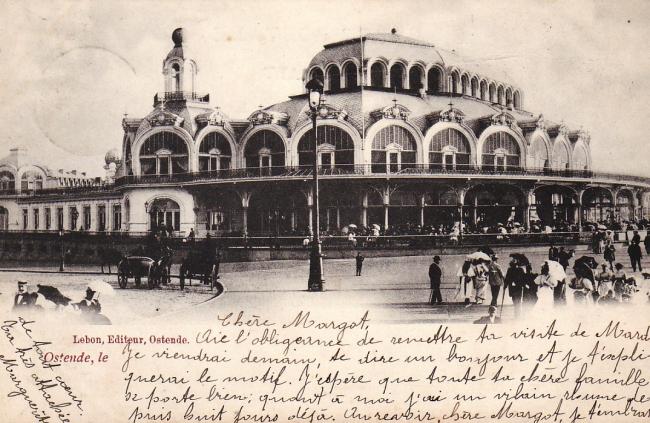 Lebon, Editeur, Ostende.
Ostende, le
Chère Margot,
Aie l'obligeance de remettre ta visite de Mard
Je viendrai demain, te dire un bonjour et je t'expli
querai le motif. J'espère que toute ta chère famille
se porte bien; quant à moi j'ai un vilain rhume de
puis huit jours déjà. Au revoir, chère Margot, je t'embra
de tout cœur.
Ta très attachée
Marguerite